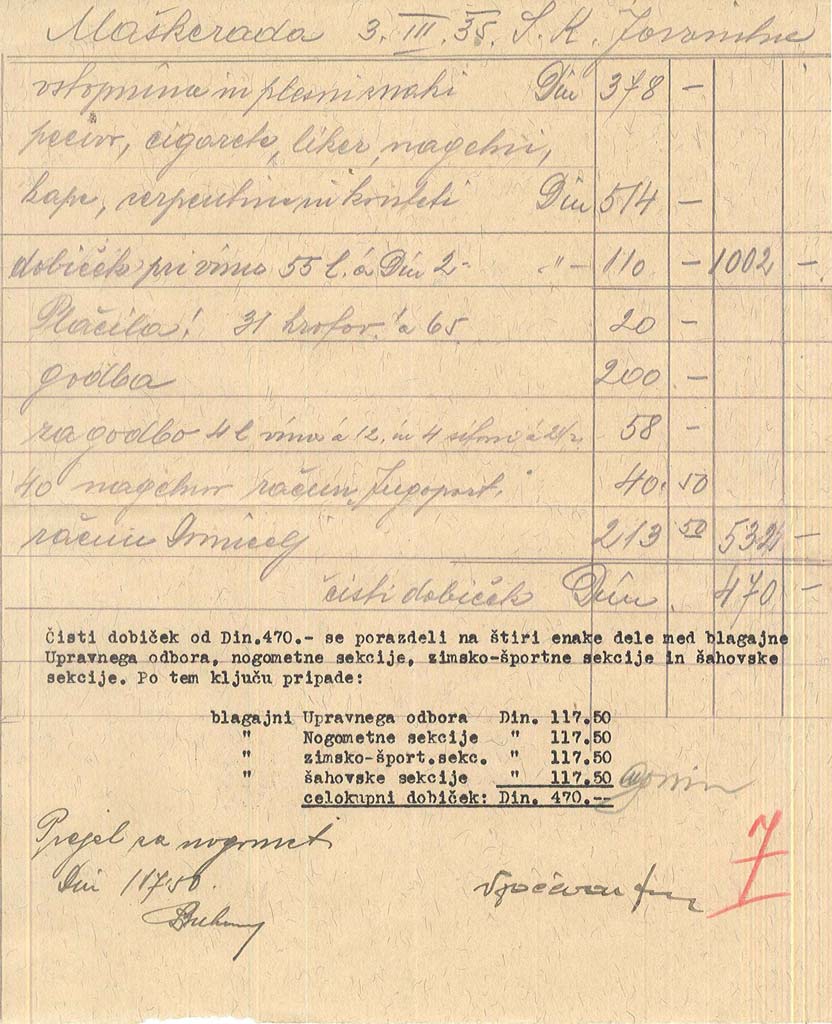 Maškerada 3. III. 35. S. K. Javornik
vstopnina in plesni znaki Din 378 –
pecivo, cigarete, liker, nageljni,
kape, serpentine in konfeti Din 514 –
dobiček pri vinu 55 l. á Din 2- " - 110 – 1002 –
Plačila! 31 krofov á 65 20 –
godba 200 –
za godbo 4 l vina á 12, in 4 sifoni á 58 –
40 nageljnov račun "Jugoport" 40. 50
račun 213 50 532 –
čisti dobiček Din 470 –
Čisti dobiček od Din.470.- se porazdeli na štiri enake dele med blagajne
Upravnega odbora, nogometne sekcije, zimsko-športne sekcije in šahovske
sekcije. Po tem ključu pripade:
blagajni Upravnega odbora Din. 117.50
" Nogometne sekcije " 117.50
" zimsko-šport.sekc. " 117.50
" šahovske sekcije " 117.50
celokupni dobiček: Din. 470.--
Prejel za nogomet
Din 117.50.
7